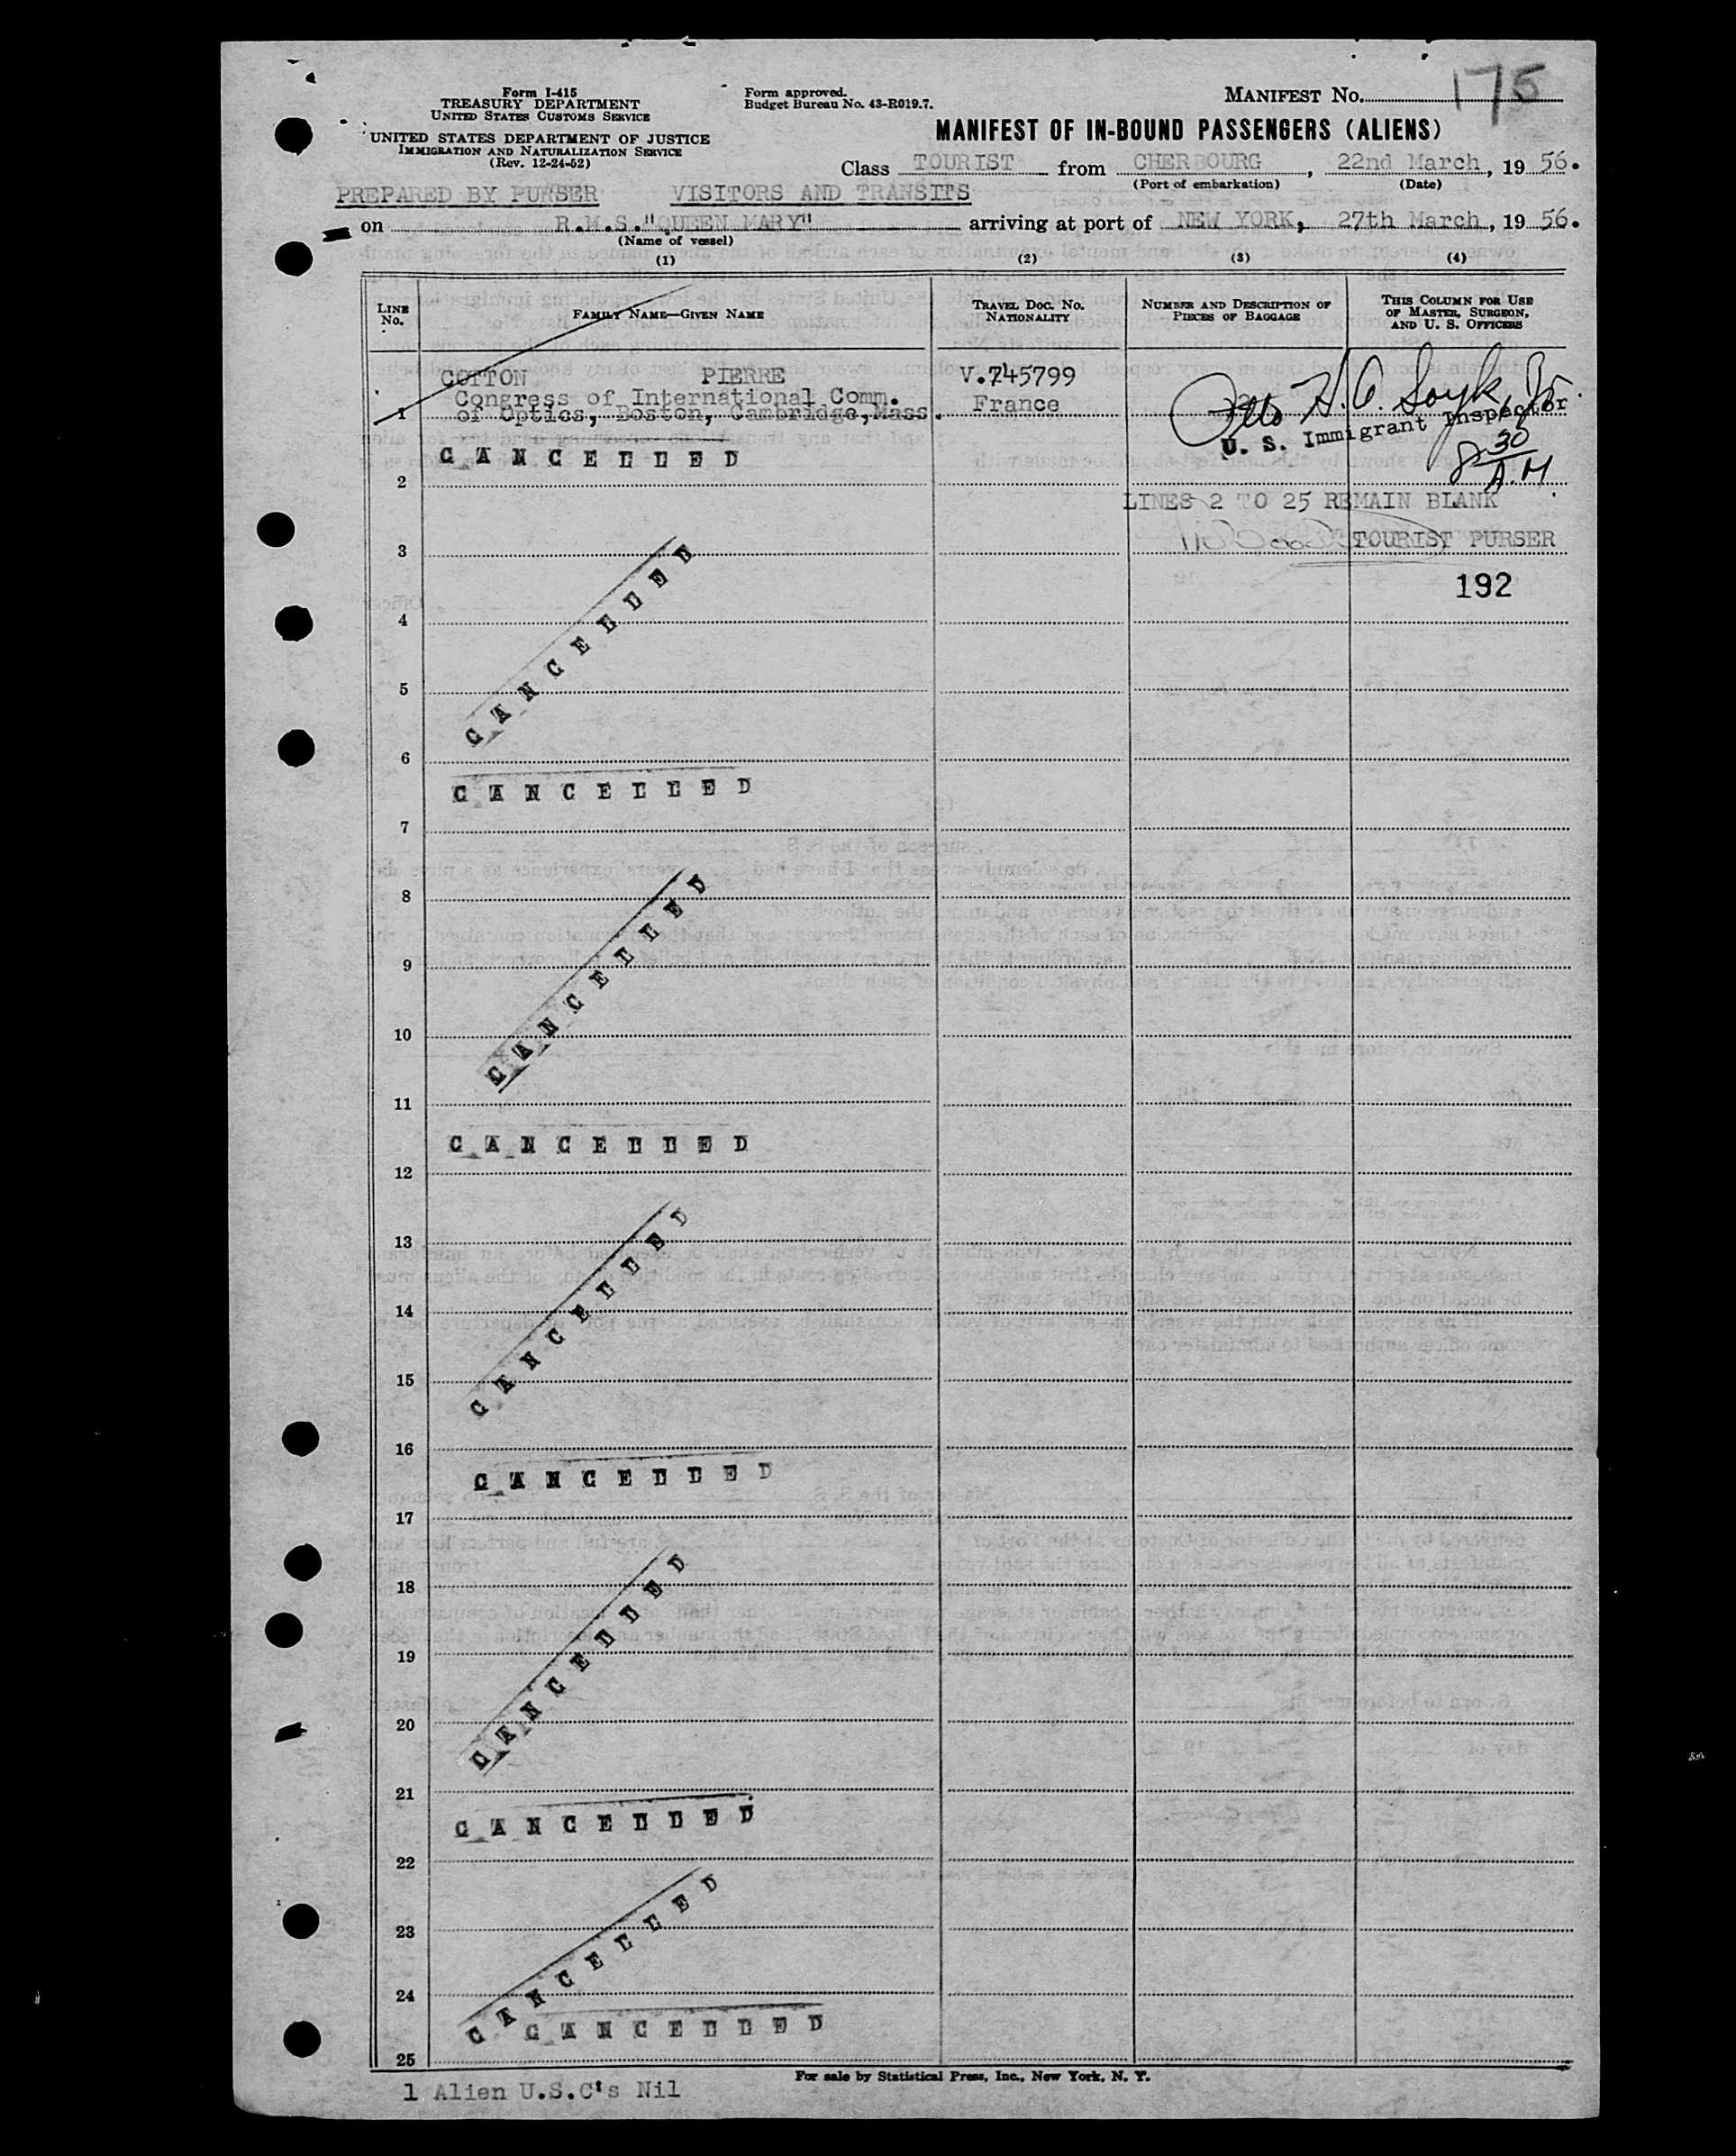 Form I-415
TREASURY DEPARTMENT
UNITED STATES CUSTOMS SERVICE
UNITED STATES DEPARTMENT OF JUSTICE
IMMIGRATION AND NATURALIZATION SERVICE
(Rev. 12-24-52)
Form approved.
Budget Bureau No. 43-R019.7.
MANIFEST No. 175
MANIFEST OF IN-BOUND PASSENGERS (ALIENS)
Class TOURIST from CHERBOURG, 22nd March, 19 56.
(Port of embarkation) (Date)
PREPARED BY PURSER VISITORS AND TRANSITS
on R.M.S. "QUEEN MARY" arriving at port of NEW YORK, 27th March, 19 56.
(Name of vessel)
(1) (2) (3) (4)
LINE No.
FAMILY NAME—GIVEN NAME
TRAVEL DOC. NO. NATIONALITY
NUMBER AND DESCRIPTION OF PIECES OF BAGGAGE
THIS COLUMN FOR USE OF MASTER, SURGEON, AND U. S. OFFICERS
COTTON PIERRE V.745799
Congress of International Comm.
1 of Optics, Boston, Cambridge, Mass. France
U. S. Immigrant Inspector
8 30 A.M
CANCELLED
2
LINES 2 TO 25 REMAIN BLANK
TOURIST PURSER
3
192
4
CANCELLED
5
6
CANCELLED
7
8
9
CANCELLED
10
11
CANCELLED
12
13
14
CANCELLED
15
16
CANCELLED
17
18
19
CANCELLED
20
21
CANCELLED
22
23
CANCELLED
24
CANCELLED
25
For sale by Statistical Press, Inc., New York, N. Y.
1 Alien U.S.C's Nil